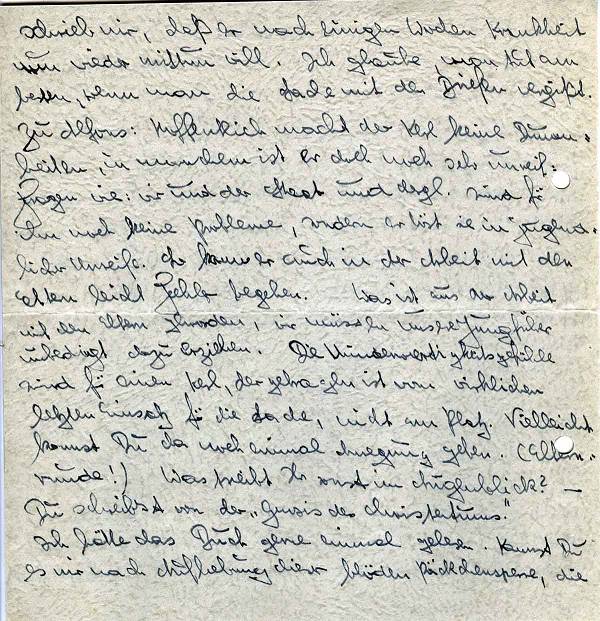 schrieb mir, daß er nach einigen Wochen Krankheit
nun wieder mittun will. Ich glaube, man tut am
besten, wenn man die Sache mit den Briefen vergißt.
Zu Alfons: Hoffentlich macht der Kerl keine Dumm-
heiten, in manchem ist er doch noch sehr unreif.
Fragen wie: wir und der Staat und drgl. sind für
ihn noch keine Probleme, sondern er löst sie in jugend-
licher Unreife. So kann er auch in der Arbeit mit den
Eltern leicht Fehler begehen. Was ist aus der Arbeit
mit den Eltern geworden, wir müssen unsere Jungführer
unbedingt dazu erziehen. Die Minderwertigkeitsgefühle
sind für einen Kerl, der getragen ist vom wirklichen
letzten Einsatz für die Sache, nicht am Platz. Vielleicht
kannst Du da noch einmal Anregung geben. (Eltern-
runde!) Was treibt Ihr sonst im Augenblick? –
Du schreibst von der „Genesis des Christentums“.
Ich hätte das Buch gerne einmal gelesen. Kannst Du
es mir nach Aufhebung dieser blöden Päckchensperre, die